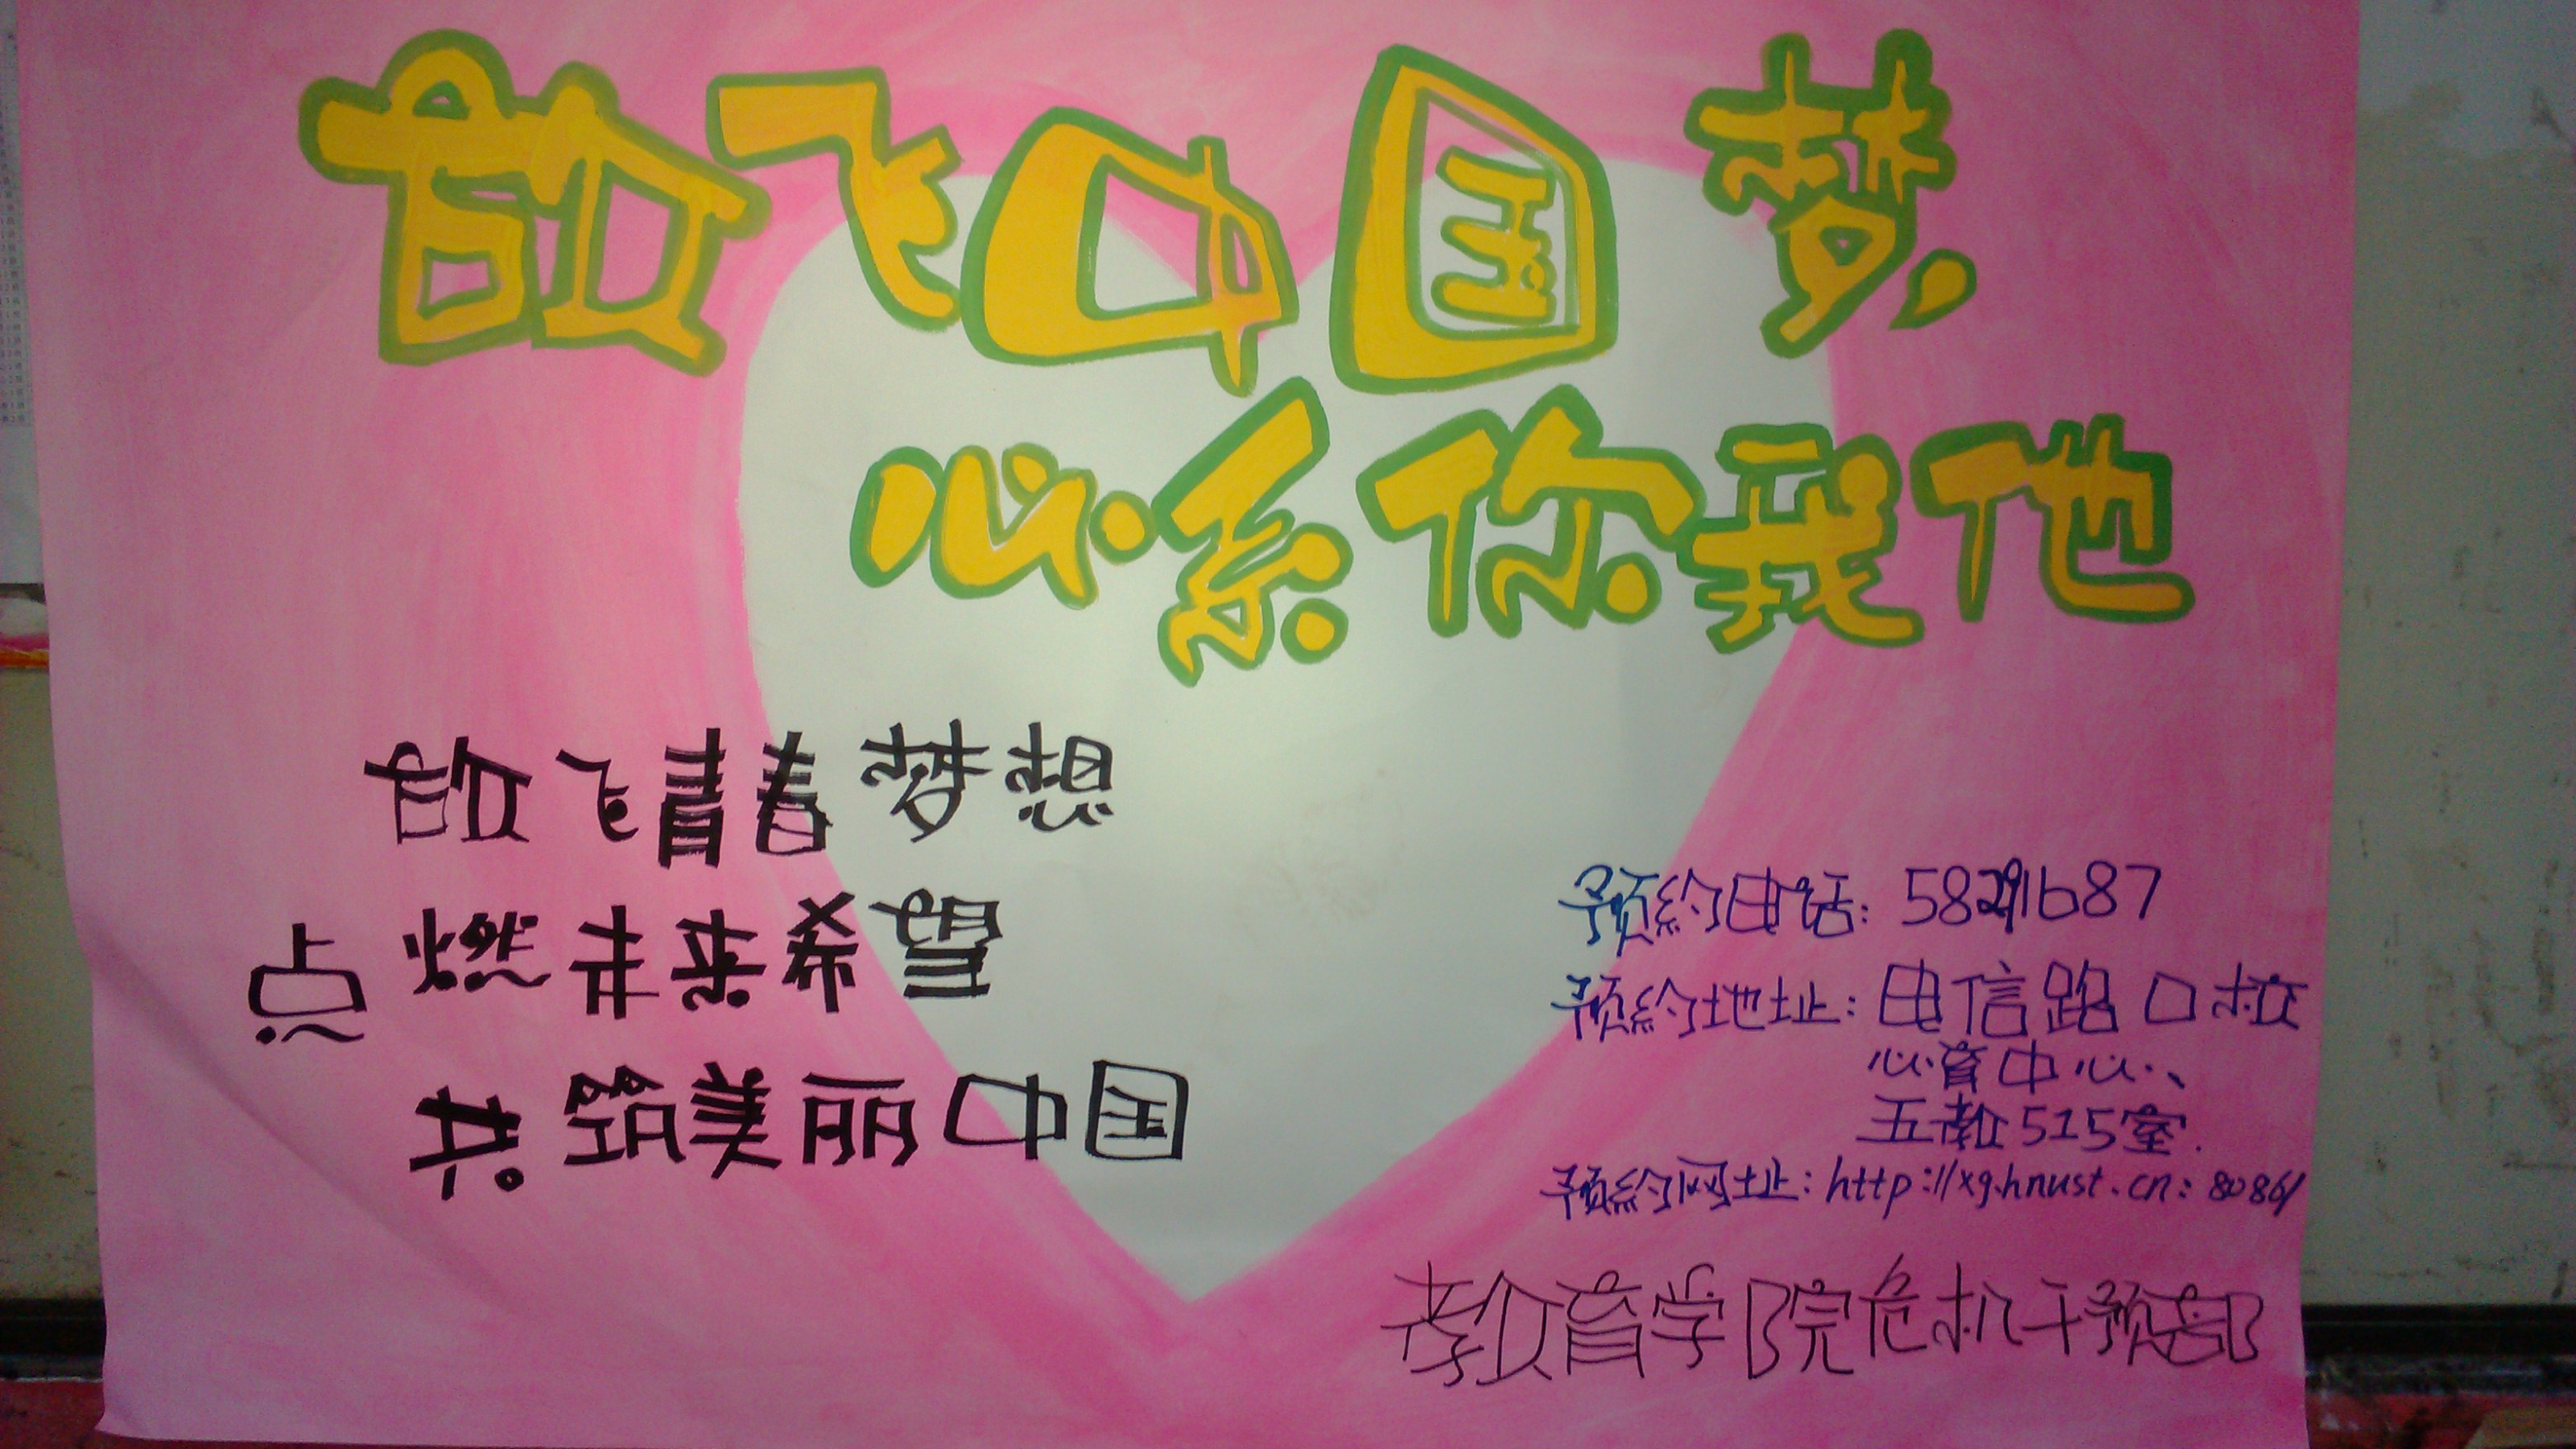 放飞中国梦,
心系你我他
放飞青春梦想
点燃未来希望
共筑美丽中国
预约电话: 58291687
预约地址: 电信路口校
心育中心、
五教515室.
预约网址: http://xg.hnust.cn:8086/
教育学院危机干预部